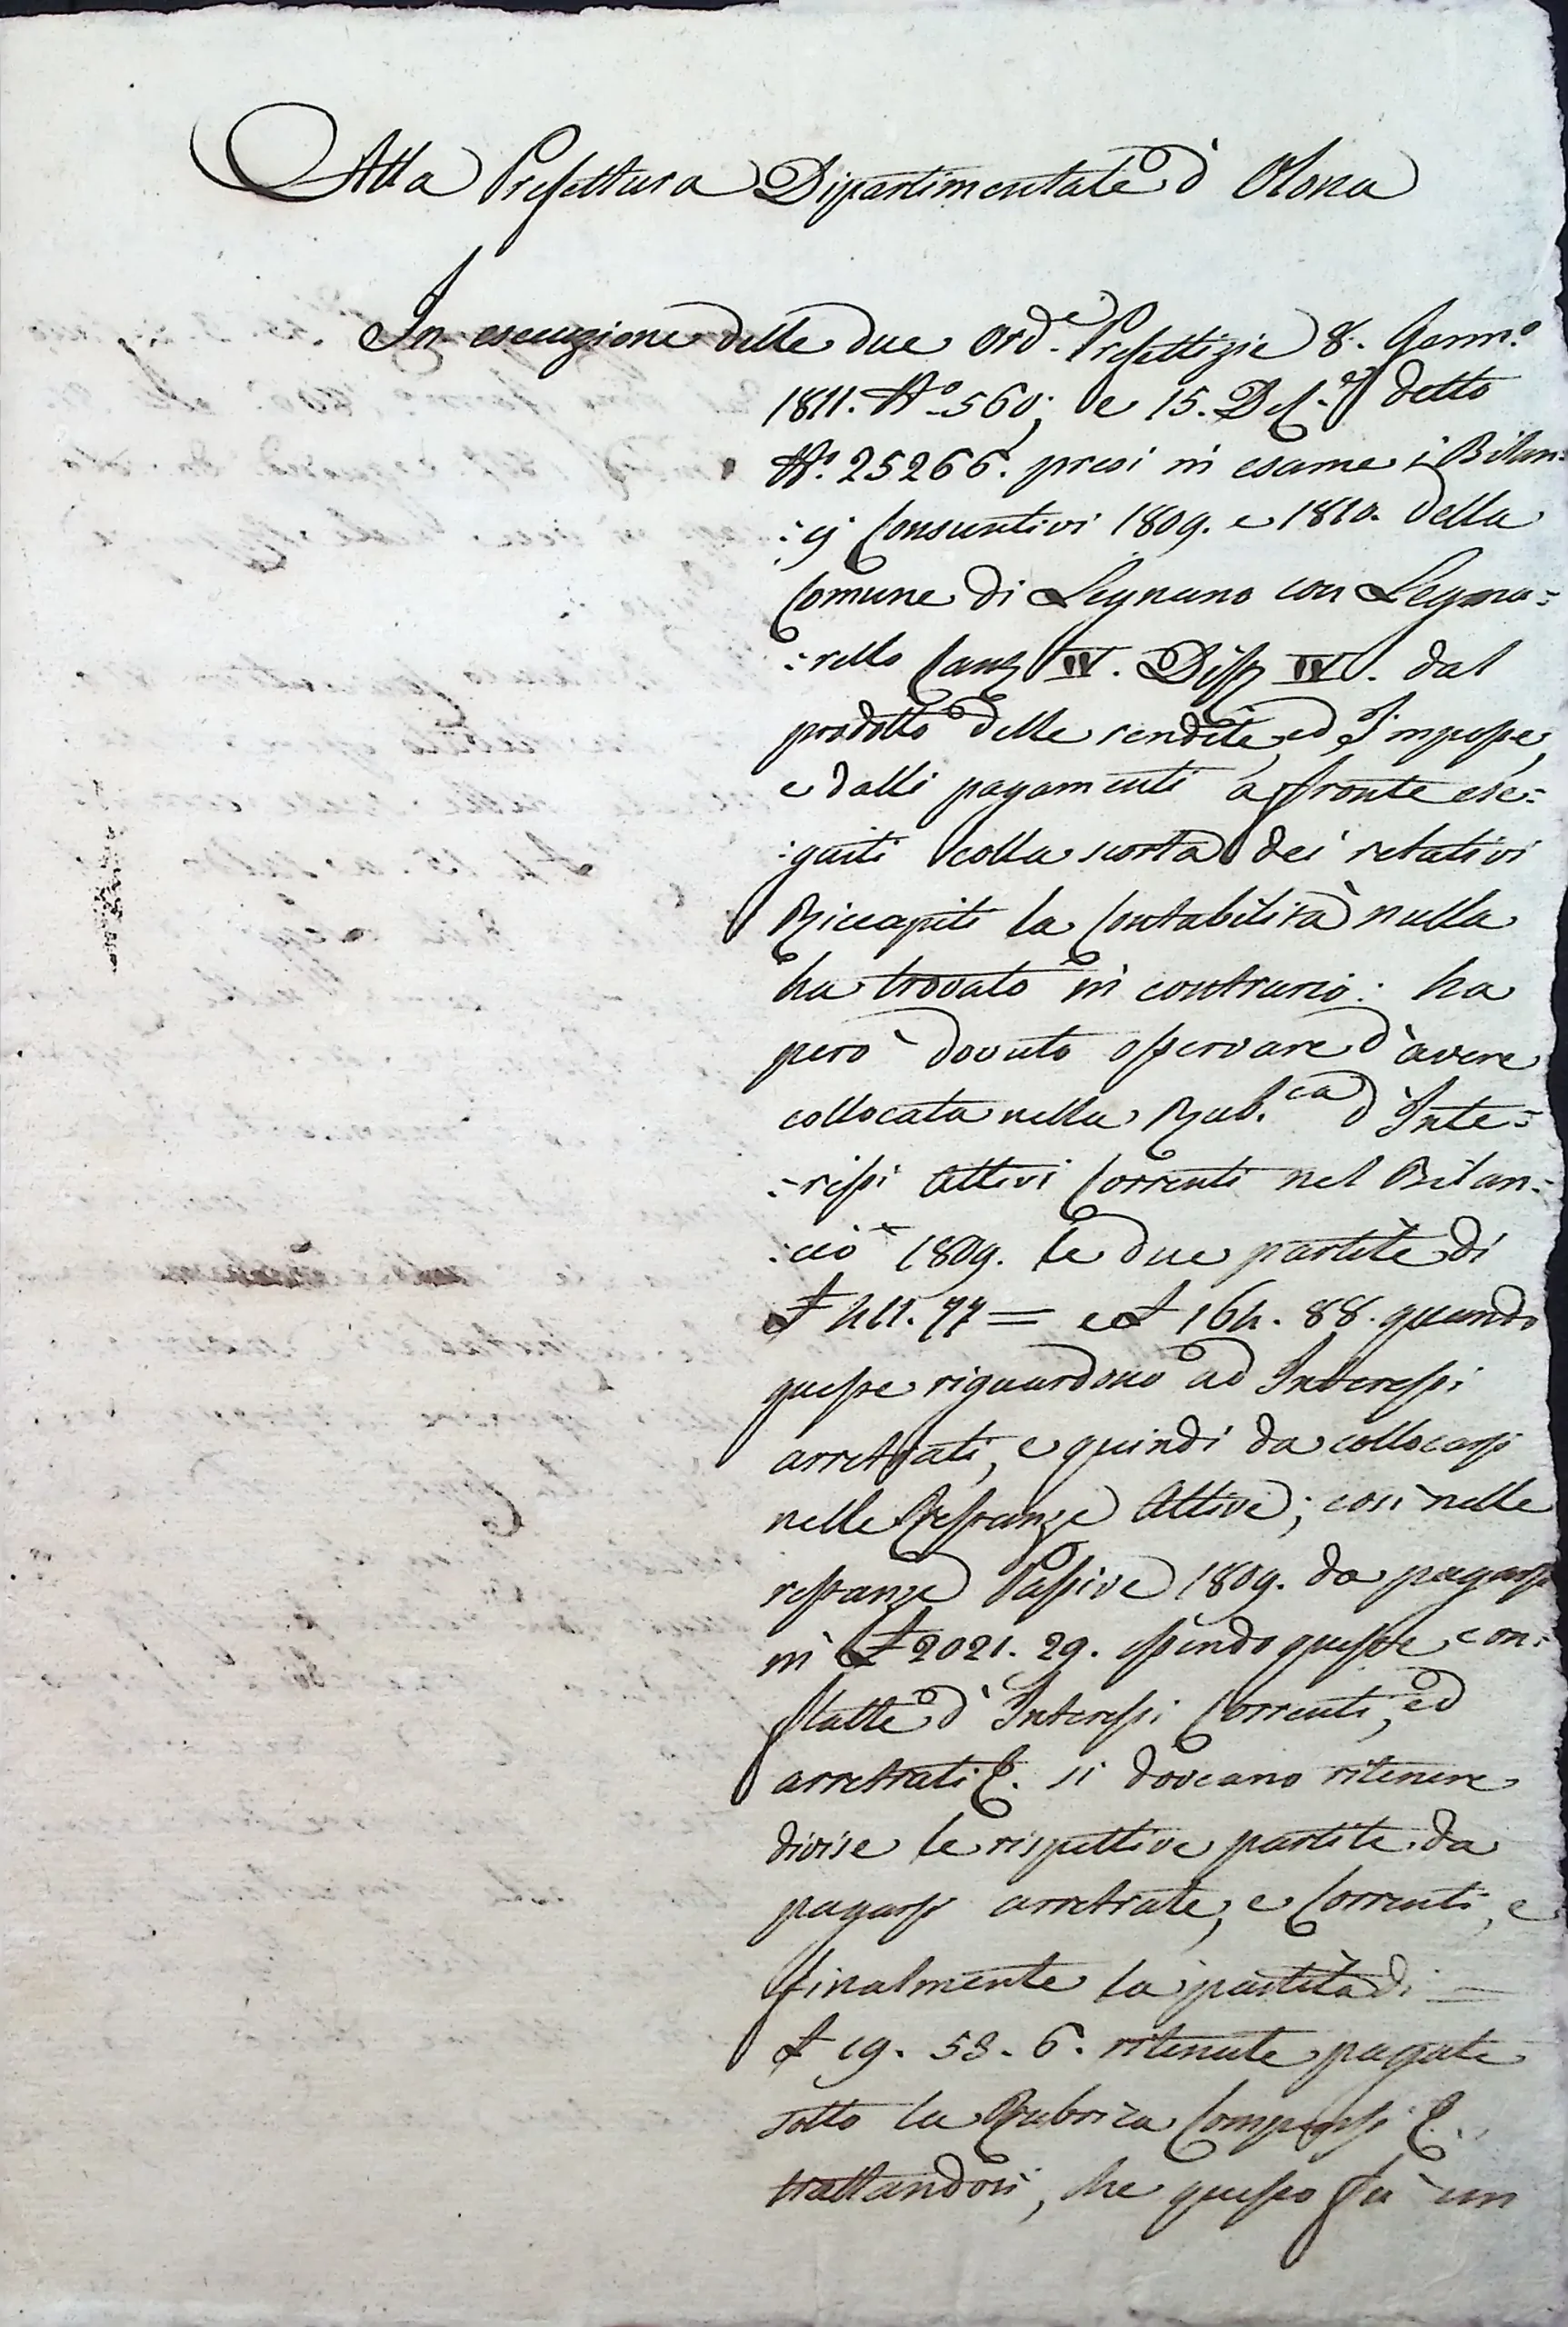 Alla Prefettura Dipartimentale d'Olona
In esecuzione delle due Ord.e Prefettizie 8. Genn.o
1811. N.o 560; e 15. detto
N.o 25266. presi in esame i Bilan=
=cj Consuntivi 1809. e 1810. della
Comune di Legnano con Legna=
=rello Canz IV. IV. dal
prodotto delle rendite, ed Imposte,
e dalli pagamenti a fronte ese=
=guiti colla scorta dei relativi
Riccapiti la Contabilità nulla
ha trovato in contrario: ha
però dovuto osservare d'avere
collocata nella Rub.ca d'Inte=
=ressi Attivi Correnti nel Bilan=
=cio 1809. le due partite di
£ 411. 77 = e £ 164. 88. quando
queste riguardono ad Interessi
arretrati, e quindi da collocarsi
nelle Restanze Attive; così nelle
restanze Passive 1809. da pagarsi
in £ 2021. 29. essendo queste con=
flatte d'Interessi Correnti, ed
arretrati si doveano ritenere
divise le rispettive partite da
pagarsi arretrate, e Correnti, e
finalmente la partita di =
£ 19. 53. 6. ritenute pagate
sotto la Rubrica Compensi
trattandosi, che questo fu un